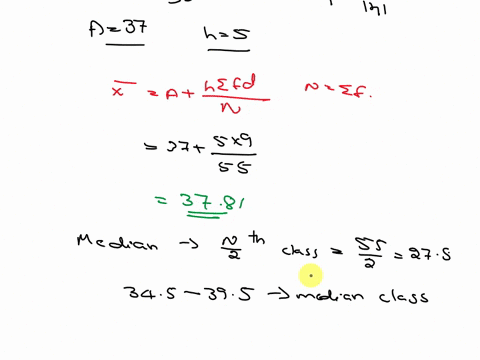 A=37 h=5
x̄ = A + hΣfd / N N = Σf.
= 37 + 5×9 / 55
= 37.81
Median → N/2 th class = 55/2 = 27.5
34.5 - 39.5 → median class